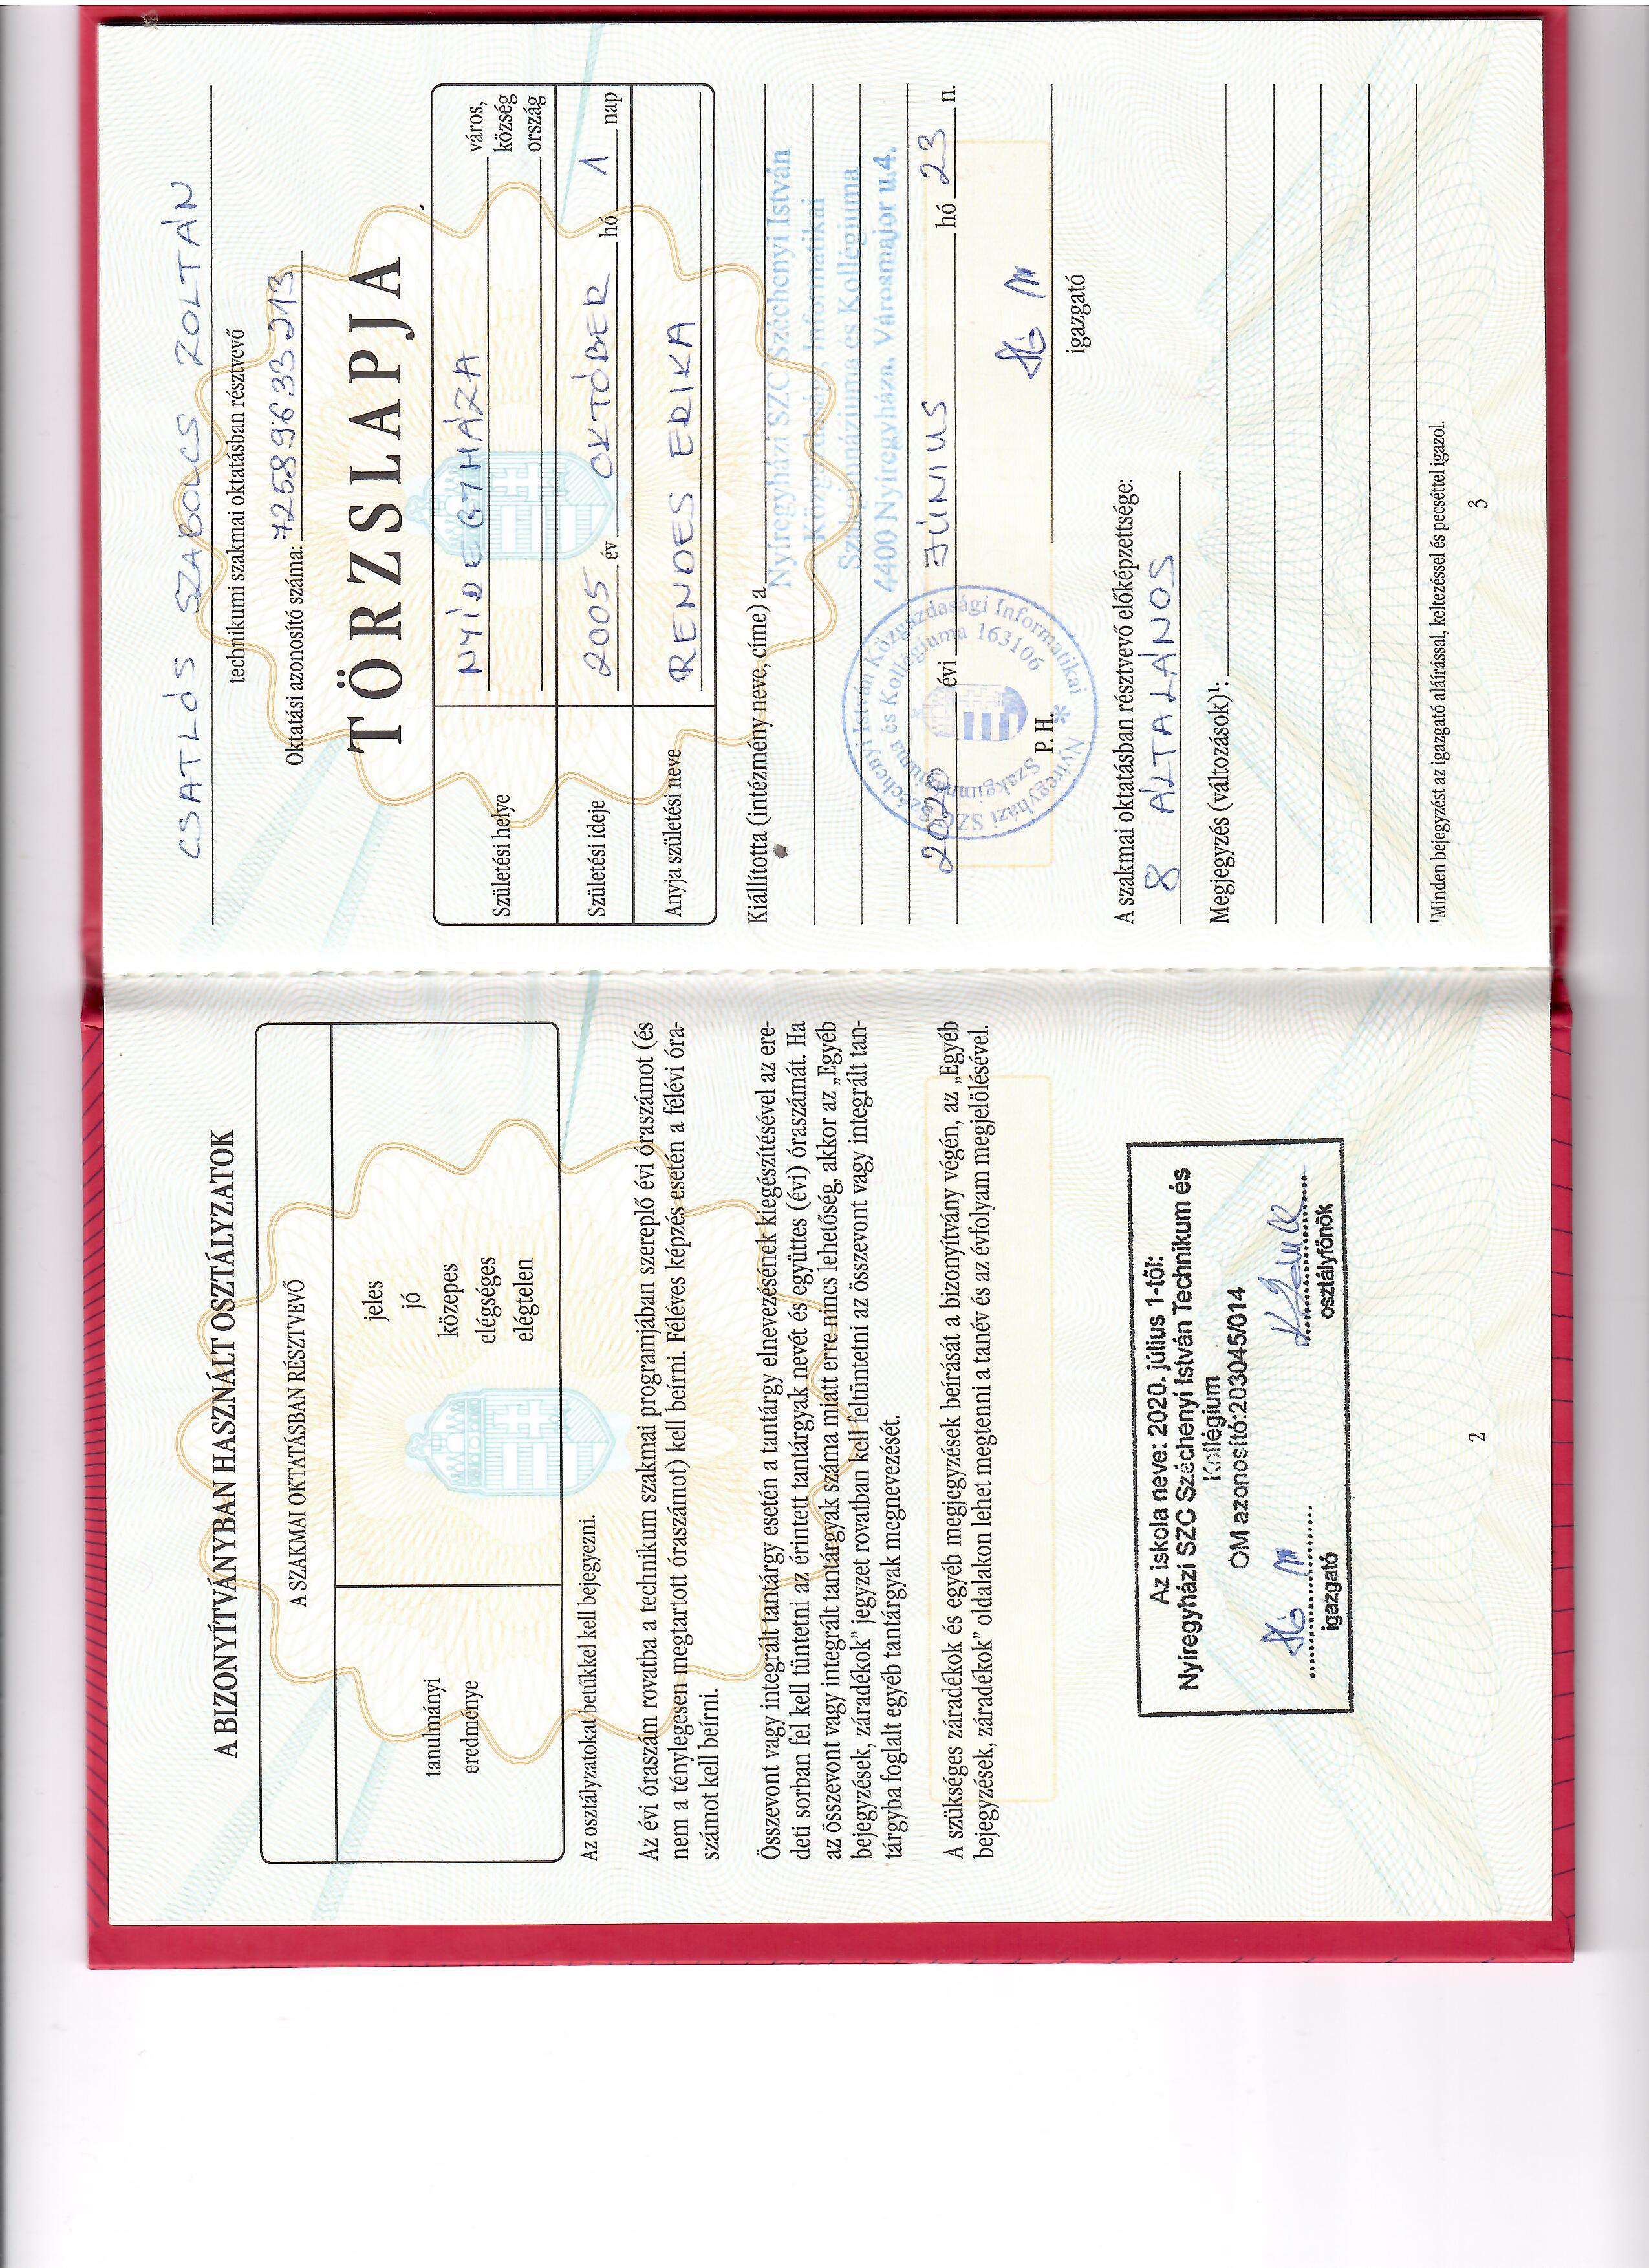 A BIZONYÍTVÁNYBAN HASZNÁLT OSZTÁLYZATOK
A SZAKMAI OKTATÁSBAN RÉSZTVEVŐ
tanulmányi
eredménye
jeles
jó
közepes
elégséges
elégtelen
Az osztályzatokat betűkkel kell bejegyezni.
Az évi óraszám rovatba a technikum szakmai programjában szereplő évi óraszámot (és
nem a ténylegesen megtartott óraszámot) kell beírni. Féléves képzés esetén a félévi óra-
számot kell beírni.
Összevont vagy integrált tantárgy esetén a tantárgy elnevezésének kiegészítésével az ere-
deti sorban fel kell tüntetni az érintett tantárgyak nevét és együttes (évi) óraszámát. Ha
az összevont vagy integrált tantárgyak száma miatt erre nincs lehetőség, akkor az „Egyéb
bejegyzések, záradékok” jegyzet rovatban kell feltüntetni az összevont vagy integrált tan-
tárgyba foglalt egyéb tantárgyak megnevezését.
A szükséges záradékok és egyéb megjegyzések beírását a bizonyítvány végén, az „Egyéb
bejegyzések, záradékok” oldalakon lehet megtenni a tanév és az évfolyam megjelölésével.
Az iskola neve: 2020. július 1-től:
Nyíregyházi SZC Széchenyi István Technikum és
Kollégium
OM azonosító:203045/014
igazgató
osztályfőnök
2
CSATLÓS SZABOLCS ZOLTÁN
technikumi szakmai oktatásban résztvevő
Oktatási azonosító száma: 72589633213
TÖRZSLAPJA
Születési helye NYÍREGYHÁZA város,
község
ország
Születési ideje 2005 év OKTÓBER hó 1 nap
Anyja születési neve RENDES ERIKA
Kiállította (intézmény neve, címe) a
Nyíregyházi SZC Széchenyi István
Közgazdasági, Informatikai
Szakgimnáziuma és Kollégiuma
4400 Nyíregyháza, Városmajor u.4.
2020 évi JÚNIUS hó 23 n.
Nyíregyházi SZC Széchenyi István Közgazdasági Informatikai
Szakgimnáziuma és Kollégiuma 163106
P.H.
igazgató
A szakmai oktatásban résztvevő előképzettsége:
8 ÁLTALÁNOS
Megjegyzés (változások)¹:
¹Minden bejegyzést az igazgató aláírással, keltezéssel és pecséttel igazol.
3